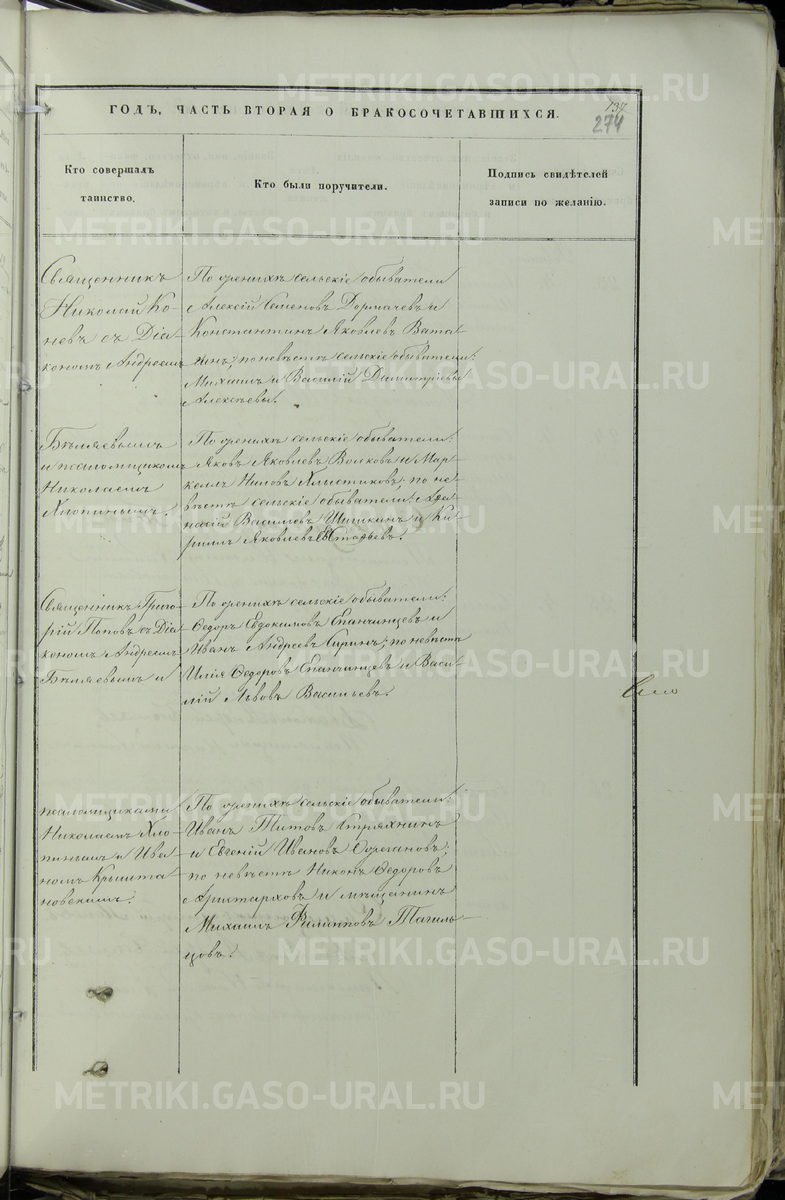 137
274
ГОДЪ, ЧАСТЬ ВТОРАЯ О БРАКОСОЧЕТАВШИХСЯ.
Кто совершалъ
таинство.
Кто были поручители.
Подпись свидѣтелей
записи по желанію.
Священникъ
Николай Ко-
невъ съ Діа-
кономъ Андреемъ
По женихѣ сельскіе обыватели
Алексій Семеновъ Дормачевъ и
Константинъ Яковлевъ Вата-
гинъ; по невѣстѣ сельскіе обыватели:
Михаилъ и Василій Димитріевы
Алексѣевы.
Бѣляевымъ
и псаломщикомъ
Николаемъ
Хлопинымъ.
По женихѣ сельскіе обыватели:
Яковъ Яковлевъ Волковъ и Мар-
келъ Ниловъ Хлыстиковъ; по не-
вѣстѣ сельскіе обыватели: Афа-
насій Васильевъ Шишкинъ и Ки-
риллъ Яковлевъ Евстафьевъ.
Священникъ Григо-
рій Поповъ съ Діа-
кономъ Андреемъ
Бѣляевымъ и
По женихѣ сельскіе обыватели:
Ѳедоръ Евдокимовъ Епанчинцевъ и
Иванъ Андреевъ Сиринъ; по невѣстѣ
Илія Ѳедоровъ Епанчинцевъ и Васи-
лій Львовъ Васильевъ.
псаломщиками
Николаемъ Хло-
пинымъ и Ива-
номъ Крышта-
новскимъ.
По женихѣ сельскіе обыватели:
Иванъ Титовъ Стряхнинъ
и Евгеній Ивановъ
по невѣстѣ Никонъ Ѳедоровъ
Аристарховъ и мѣщанинъ
Михаилъ Филипповъ Тагиль-
цовъ.
METRIKI.GASO-URAL.RU